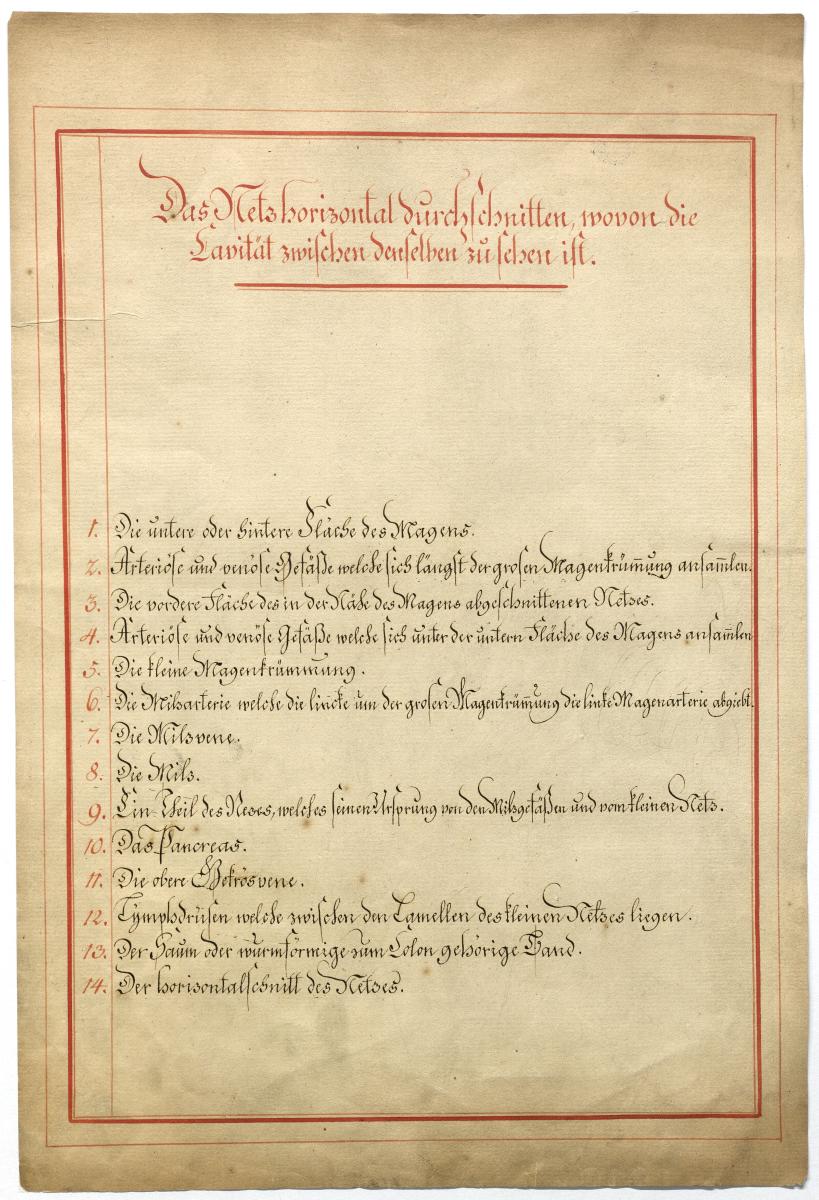 Das Netz horizontal durchschnitten, wovon die
Cavität zwischen denselben zu sehen ist.
1. Die untere oder hintere Fläche des Magens.
2. Arteriöse und venöse Gefäße welche sich längst der grosen Magenkrüm̄ung ansam̄len.
3. Die vordere Fläche des in der Nähe des Magens abgeschnittenen Netzes.
4. Arteriöse und venöse Gefäße welche sich unter der untern Fläche des Magens ansam̄len
5. Die kleine Magenkrümmung.
6. Die Milzarterie welche die lincke um der grosen Magenkrüm̄ung die linke Magenarterie abgiebt.
7. Die Milzvene.
8. Die Milz.
9. Ein Theil des Nezes, welches seinen Ursprung von den Milzgefäßen und vom kleinen Netz.
10. Das Pancreas.
11. Die obere Gekrösvene.
12. Lymphdrüsen welche zwischen den Lamellen des kleinen Netzes liegen.
13. Der Saum oder wurmförmige zum Colon gehörige Band.
14. Der horizontalschnitt des Netzes.